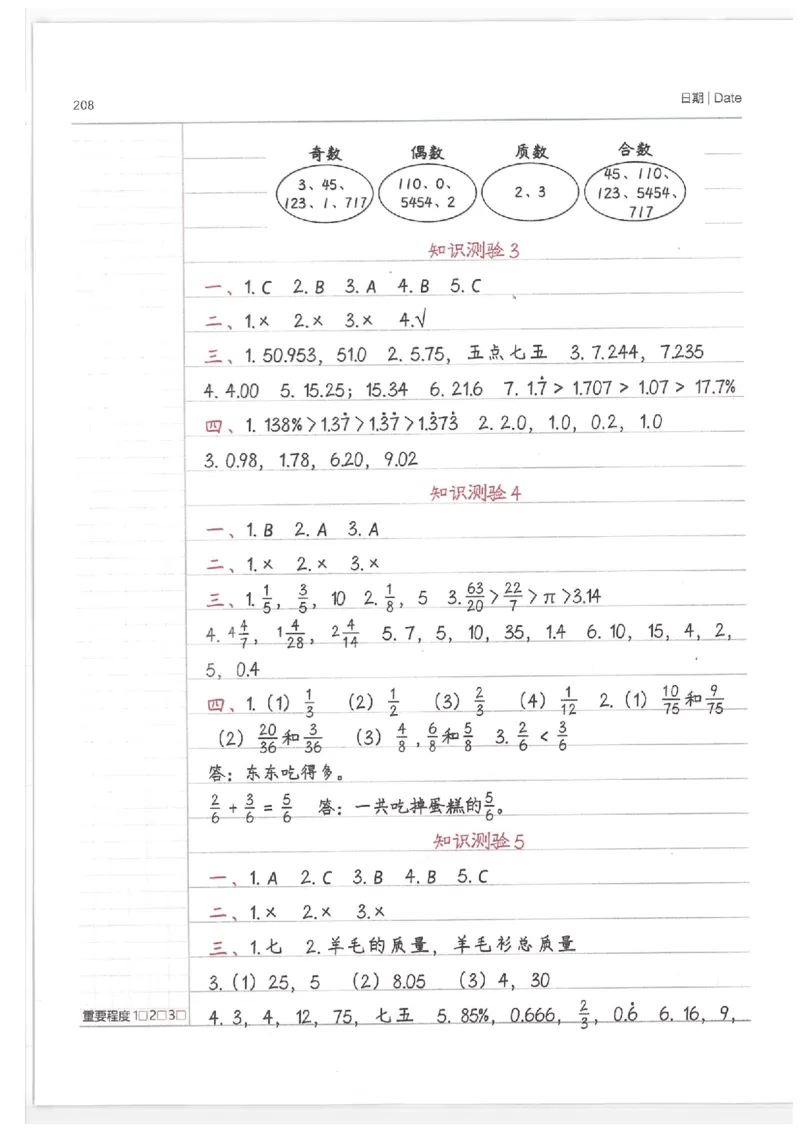 208
日期 | Date
奇数 偶数 质数 合数
3、45、 110、0、 2、3 45、110、
123、1、717 5454、2 123、5454、
717
知识测验3
一、1. C 2. B 3. A 4. B 5. C
二、1. × 2. × 3. × 4. √
三、1. 50.953, 51.0 2. 5.75, 五点七五 3. 7.244, 7.235
4. 4.00 5. 15.25; 15.34 6. 21.6 7. 1.7̇ > 1.707 > 1.07 > 17.7%
四、1. 138% > 1.37̇ > 1.3̇7̇ > 1.3̇73̇ 2. 2.0, 1.0, 0.2, 1.0
3. 0.98, 1.78, 6.20, 9.02
知识测验4
一、1. B 2. A 3. A
二、1. × 2. × 3. ×
三、1. 1/5, 3/5, 10 2. 1/8, 5 3. 63/20 > 22/7 > π > 3.14
4. 4 4/7, 1 4/28, 2 4/14 5. 7, 5, 10, 35, 1.4 6. 10, 15, 4, 2,
5, 0.4
四、1. (1) 1/3 (2) 1/2 (3) 2/3 (4) 1/12 2. (1) 10/75和9/75
(2) 20/36和3/36 (3) 4/8, 6/8和5/8 3. 2/6 < 3/6
答：东东吃得多。
2/6 + 3/6 = 5/6 答：一共吃掉蛋糕的5/6。
知识测验5
一、1. A 2. C 3. B 4. B 5. C
二、1. × 2. × 3. ×
三、1. 七 2. 羊毛的质量, 羊毛衫总质量
3. (1) 25, 5 (2) 8.05 (3) 4, 30
4. 3, 4, 12, 75, 七五 5. 85%, 0.666, 2/3, 0.6̇ 6. 16, 9,
重要程度 1□2□3□